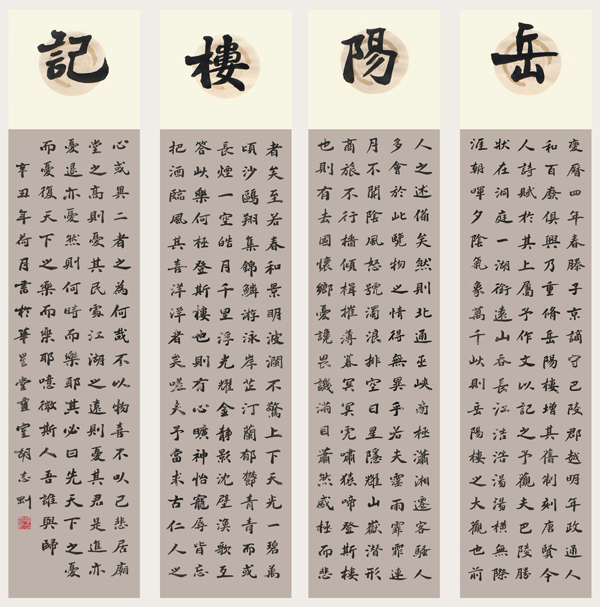 岳
慶曆四年春滕子京謫守巴陵郡越明年政通人
和百廢俱興乃重修岳陽樓增其舊制刻唐賢今
人詩賦於其上屬予作文以記之予觀夫巴陵勝
狀在洞庭一湖銜遠山吞長江浩浩湯湯橫無際
涯朝暉夕陰氣象萬千此則岳陽樓之大觀也前
陽
人之述備矣然則北通巫峽南極瀟湘遷客騷人
多會於此覽物之情得無異乎若夫霪雨霏霏連
月不開陰風怒號濁浪排空日星隱耀山嶽潛形
商旅不行檣傾楫摧薄暮冥冥虎嘯猿啼登斯樓
也則有去國懷鄉憂讒畏譏滿目蕭然感極而悲
樓
者矣至若春和景明波瀾不驚上下天光一碧萬
頃沙鷗翔集錦鱗游泳岸芷汀蘭郁鬱青青而或
長煙一空皓月千里浮光耀金靜影沈璧漁歌互
答此樂何極登斯樓也則有心曠神怡寵辱皆忘
把酒臨風其喜洋洋者矣嗟夫予嘗求古仁人之
記
心或異二者之為何哉不以物喜不以己悲居廟
堂之高則憂其民處江湖之遠則憂其君是進亦
憂退亦憂然則何時而樂耶其必曰先天下之憂
而憂後天下之樂而樂耶噫微斯人吾誰與歸
辛丑年荷月書於華堂畫室胡志剛